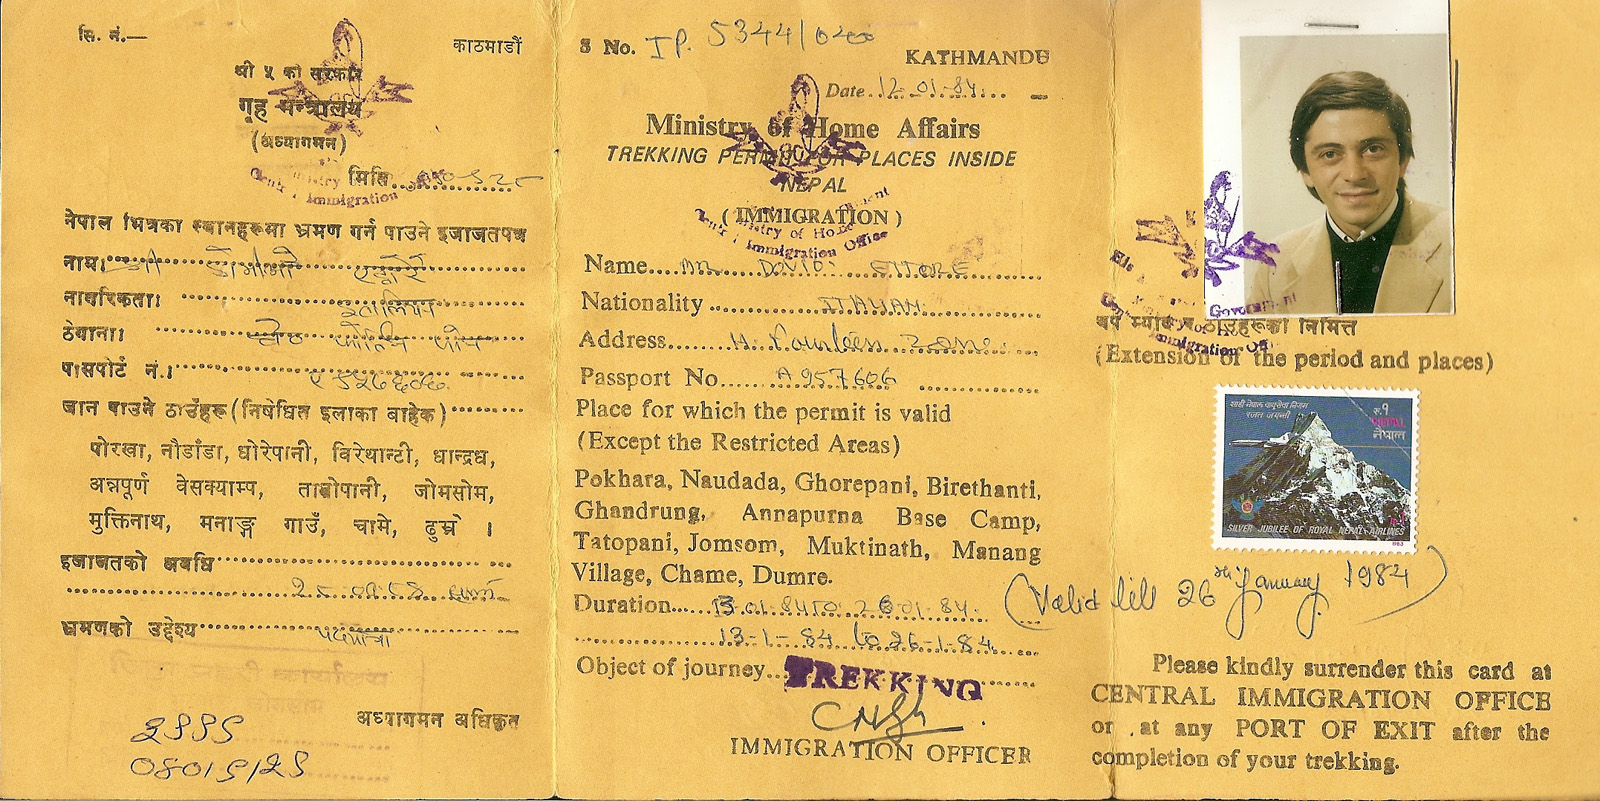 सि. नं.—
काठमाडौं
श्री ५ को सरकार
गृह मन्त्रालय
(अध्यागमन)
मिति
नेपाल भित्रका स्थानहरूमा भ्रमण गर्न पाउने इजाजतपत्र
नाम।
नागरिकता।
इतालियन
ठेगाना।
पासपोर्ट नं.।
जान पाउने ठाउँहरू (निषेधित इलाका बाहेक)
पोरखा, नौडाँडा, घोरेपानी, विरेथान्टी, घान्द्रुघ,
अन्नपूर्ण वेसक्याम्प, तातोपानी, जोमसोम,
मुक्तिनाथ, मनाङ्ग गाउँ, चामे, डुम्रे ।
इजाजतको अवधि
भ्रमणको उद्देश्य
पदयात्रा
अध्यागमन अधिकृत
S No. IP. 5344/040
KATHMANDU
Date 12-01-84
Ministry of Home Affairs
TREKKING PERMIT FOR PLACES INSIDE
NEPAL
(IMMIGRATION)
Ministry of Home
Central Immigration Office
Name Mr. DOVIDI ETTORE
Nationality ITALIAN
Address
Passport No. A957606
Place for which the permit is valid
(Except the Restricted Areas)
Pokhara, Naudada, Ghorepani, Birethanti,
Ghandrung, Annapurna Base Camp,
Tatopani, Jomsom, Muktinath, Manang
Village, Chame, Dumre.
Duration 13.01.84 TO 26.01.84.
13-1-84 to 26-1-84
Object of journey TREKKING
IMMIGRATION OFFICER
Government
Immigration
थप म्याद र ठाउँहरूको निमित्त
(Extension of the period and places)
शाही नेपाल वायुसेवा निगम
रजत जयन्ती
रु १
नेपाल
NEPAL
SILVER JUBILEE OF ROYAL NEPAL AIRLINES
1983
(Valid till 26th January 1984)
Please kindly surrender this card at
CENTRAL IMMIGRATION OFFICE
or at any PORT OF EXIT after the
completion of your trekking.